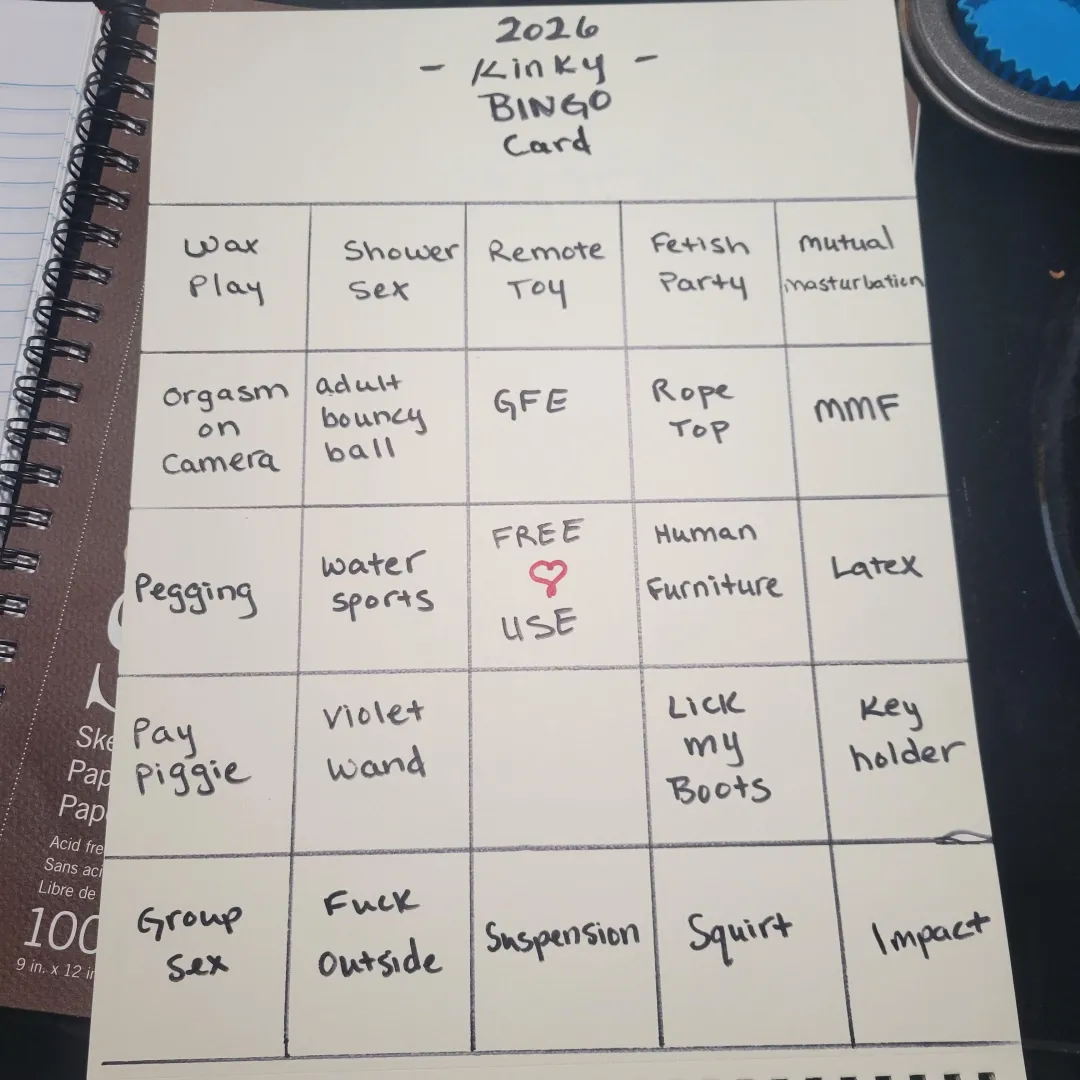 2026
- Kinky -
BINGO
Card
Wax
Play
Shower
Sex
Remote
Toy
Fetish
Party
mutual
masturbation
Orgasm
on
Camera
adult
bouncy
ball
GFE
Rope
Top
MMF
Pegging
Water
sports
FREE
USE
Human
Furniture
Latex
Pay
Piggie
Violet
wand
Lick
my
Boots
Key
holder
Group
Sex
Fuck
Outside
Suspension
Squirt
Impact
Acid fre
Sans aci
Libre de
100
9 in. x 12 in